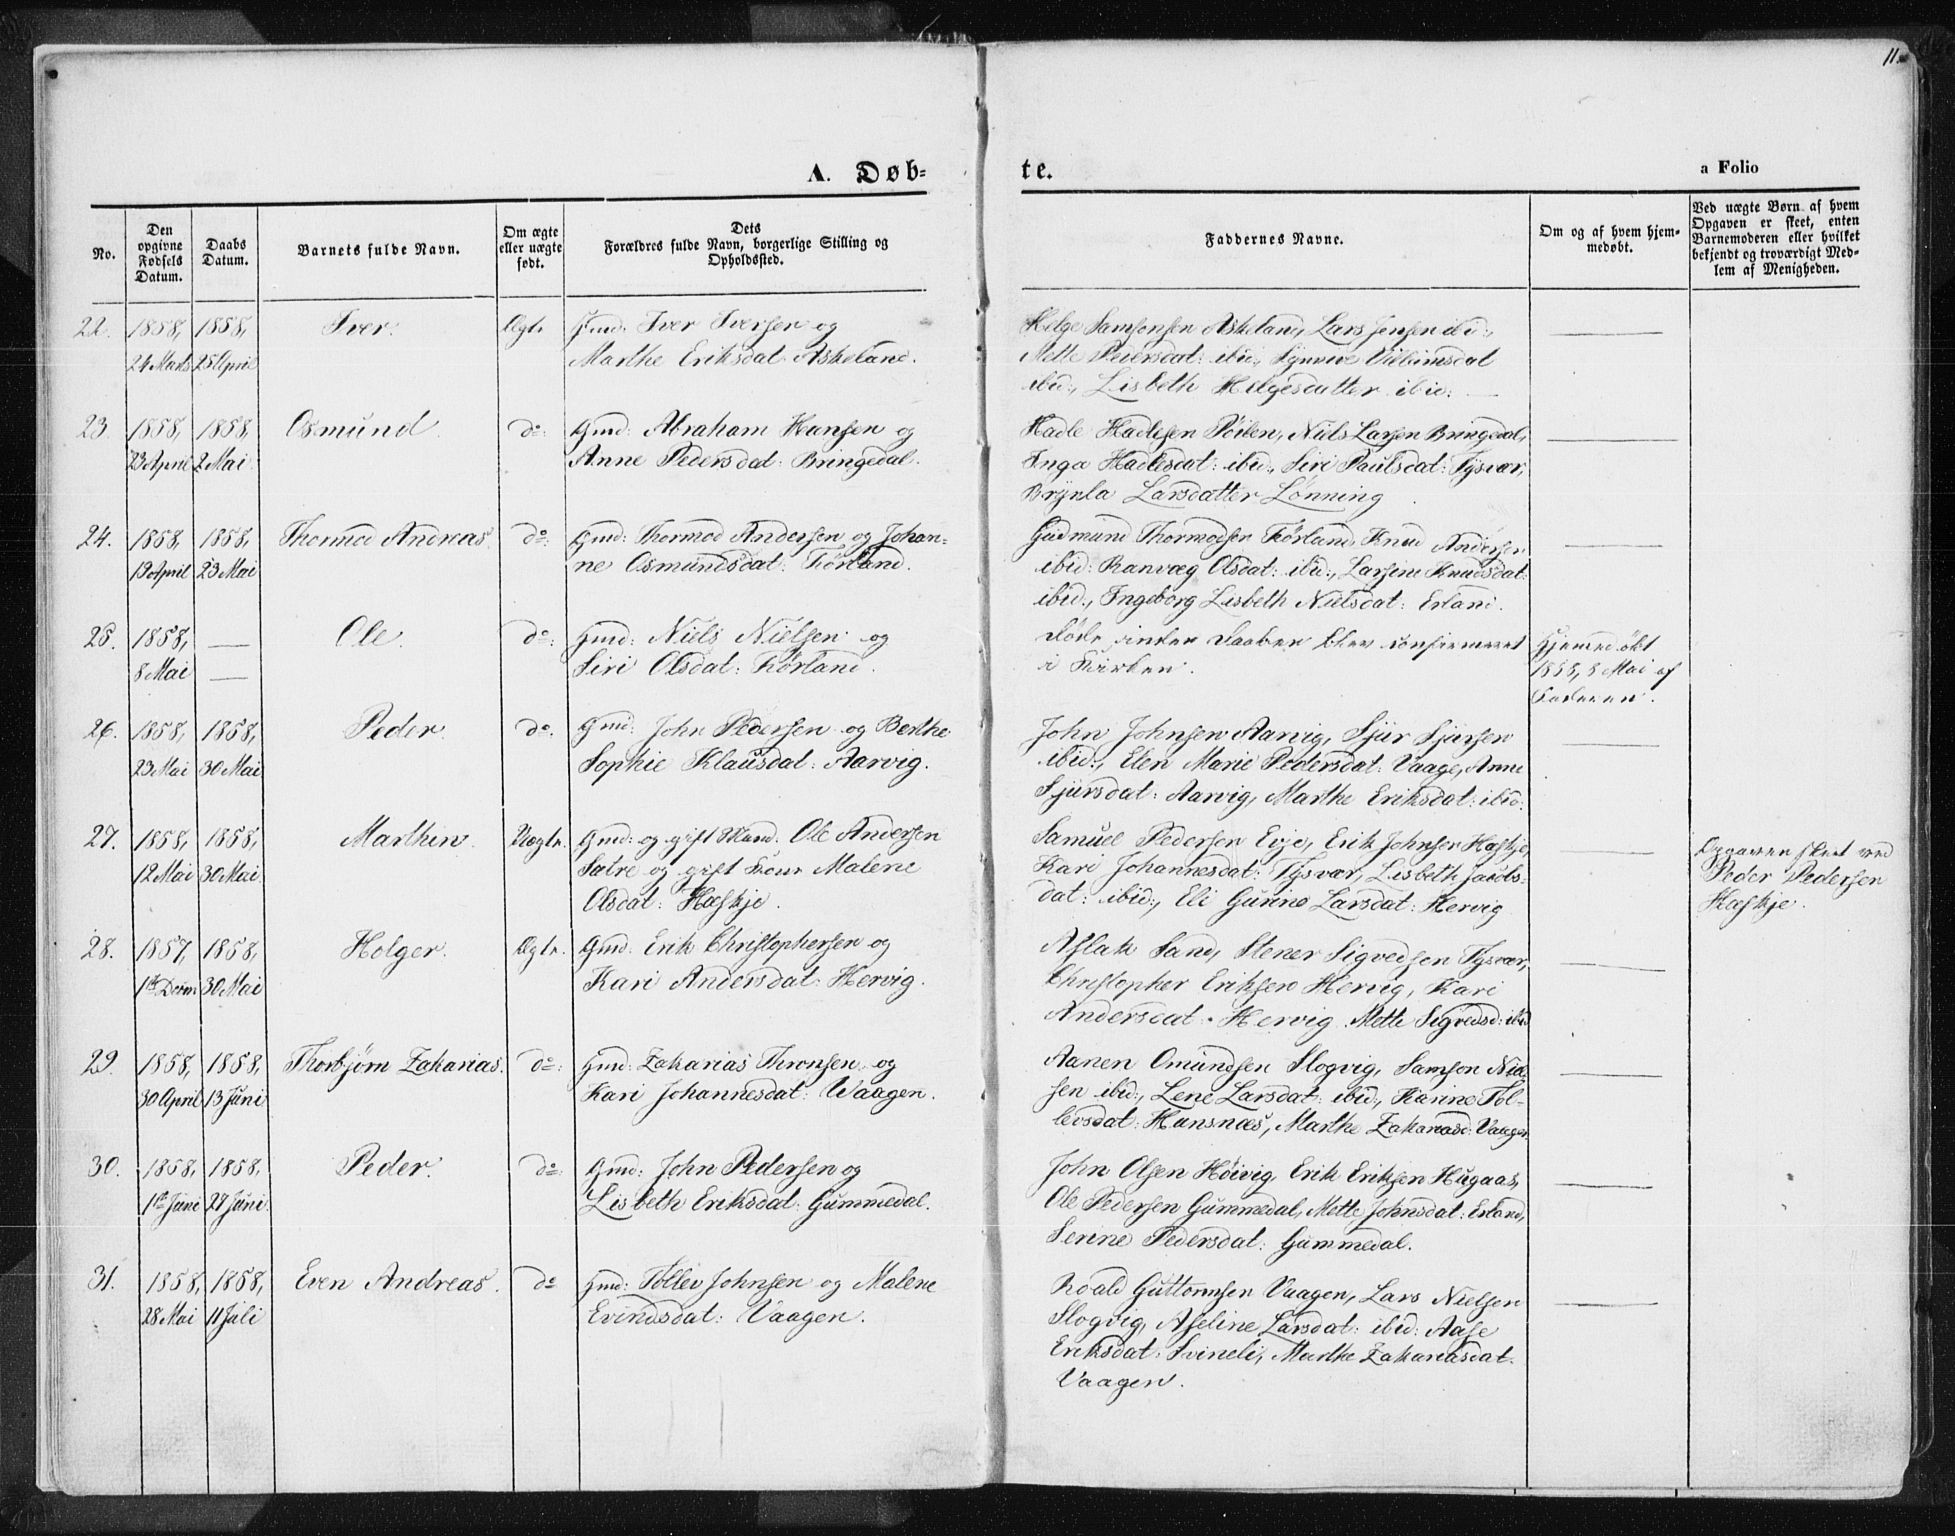 11.
A. Døb=
te.
a Folio
No.
Den opgivne Fødsels Datum.
Daabs Datum.
Barnets fulde Navn.
Om ægte eller uægte født.
Dets
Forældres fulde Navn, borgerlige Stilling og
Opholdssted.
Faddernes Navne.
Om og af hvem hjem-
medøbt.
Ved uægte Børn af hvem
Opgaven er skeet, enten
Barnemoderen eller hvilket
bekjendt og troværdigt Med-
lem af Menigheden.
22. 1858, 1858, Iver. Ægte Gmd: Iver Iversen og
24 Marts 25 April Marthe Eriksdat. Askeland.
Helge Samsonsen Askeland, Lars Jensen ibid:,
Mette Pedersdat: ibid:, Synneve
ibid:, Lisbeth Helgesdatter ibid:
23. 1858, 1858, Osmund do: Gmd: Abraham Hansen og
23 April 2 Mai Anne Pedersdat: Bringedal.
Hadle Hadlesen Pöilen, Niels Larsen Bringedal,
Inga Hadlesdat: ibid:, Siri Paulsdat: Tysvær,
Brynla Larsdatter Lønning
24. 1858, 1858, Thormod Andreas. do: Gmd: Thormod Andersen og Johan-
19 April 23 Mai ne Osmundsdat: Førland.
Gudmund Thormodsen Førland, Knud Andersen
ibid: Ranvæg Olsdat: ibid:, Larsine Knudsdat:
ibid:, Ingeborg Lisbeth Nielsdat: Erland.
25. 1858, — Ole. do: Gmd: Niels Nielsen og
8 Mai — Siri Olsdat: Førland.
Døde inden Daaben blev confirmeret
i Kirken.
Hjemmedøbt
1858, 8 Mai af
Faderen.
26. 1858, 1858, Peder. do: Gmd: John Pedersen og Berthe
23 Mai 30 Mai Sophie Klausdat: Aarvig.
John Johnsen Aarvig, Sjur Sjursen
ibid:, Elen Marie Pedersdat: Vaage, Anne
Sjursdat: Aarvig, Marthe Eriksdat: ibid:
27. 1858, 1858, Marthin. Uægte. Gmd: og gift Mand: Ole Andersen
12 Mai 30 Mai Sætre og gift Kone Malene
Olsdat: Hæskje.
Samuel Pedersen Evje, Erik Johnsen Hæskje,
Kari Johannesdat: Tysvær, Lisbeth Jacobs-
dat: ibid:, Eli Gurine Larsdat: Hervig
Opgaven skeet ved
Peder Pedersen
Hæskje.
28. 1857, 1858, Holger. Ægte. Gmd: Erik Christophersen og
1ste Decm 30 Mai Kari Andersdat: Hervig.
Aslak Sand, Stener Sigvedsen Tysvær,
Christopher Eriksen Hervig, Kari
Andersdat. Hervig. Mette Sigvedsd: ibid
29. 1858, 1858, Thorbjørn Zakarias. do: Gmd: Zakarias Thronsen og
30 April 13 Juni Kari Johannesdat: Waagen.
Aanen Omundsen Slogvig, Samson Niel-
sen ibid:, Lene Larsdat: ibid:, Karine Tol-
levsdat: Hansnæs, Marthe Zakariasd: Vaagen
30. 1858, 1858, Peder. do: Gmd: John Pedersen og
1ste Juni 27 Juni. Lisbeth Eriksdat: Gummedal.
John Olsen Høivig, Erik Eriksen Hugaas,
Ole Pedersen Gummedal, Mette Johnsdat: Erland,
Serine Pedersdat: Gummedal.
31. 1858, 1858, Even Andreas. do Gmd: Tollev Johnsen og Malene
28 Mai 11 Juli Evindsdat: Vaagen.
Roald Guttormsen Vaagen, Lars Nielsen
Slogvig, Aseline Larsdat: ibid: Aase
Eriksdat: Svineli, Marthe Zakariasdat.
Vaagen.